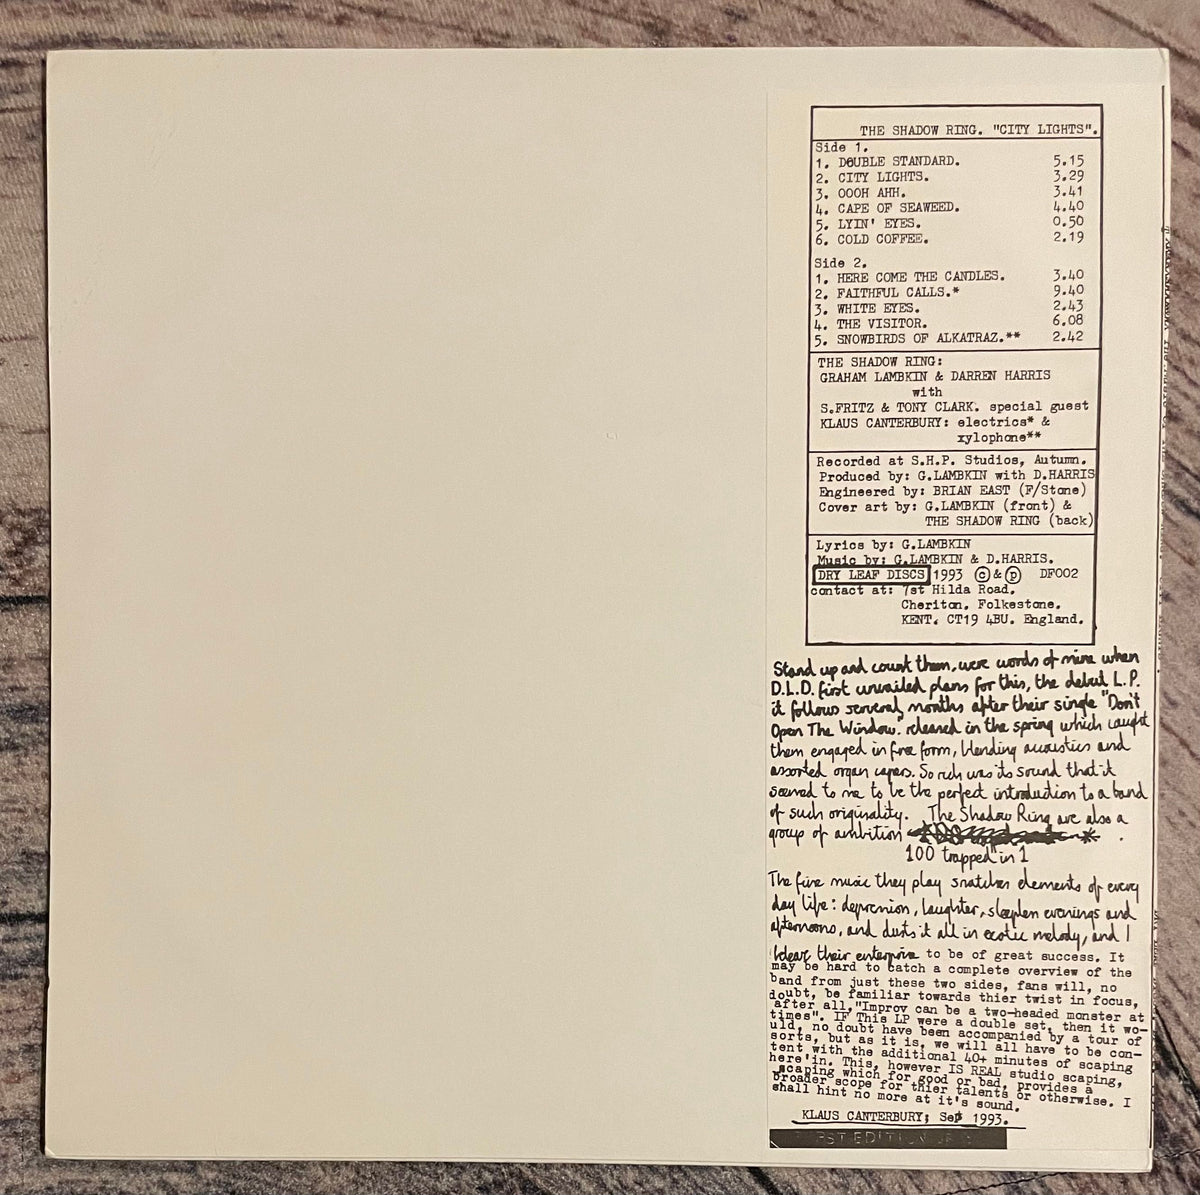 THE SHADOW RING. "CITY LIGHTS".
Side 1.
1. DOUBLE STANDARD. 5.15
2. CITY LIGHTS. 3.29
3. OOOH AHH. 3.41
4. CAPE OF SEAWEED. 4.40
5. LYIN' EYES. 0.50
6. COLD COFFEE. 2.19
Side 2.
1. HERE COME THE CANDLES. 3.40
2. FAITHFUL CALLS.* 9.40
3. WHITE EYES. 2.43
4. THE VISITOR. 6.08
5. SNOWBIRDS OF ALKATRAZ.** 2.42
THE SHADOW RING:
GRAHAM LAMBKIN & DARREN HARRIS
with
S.FRITZ & TONY CLARK. special guest
KLAUS CANTERBURY: electrics* &
xylophone**
Recorded at S.H.P. Studios, Autumn.
Produced by: G.LAMBKIN with D.HARRIS
Engineered by: BRIAN EAST (F/Stone)
Cover art by: G.LAMBKIN (front) &
THE SHADOW RING (back)
Lyrics by: G.LAMBKIN
Music by: G.LAMBKIN & D.HARRIS.
DRY LEAF DISCS 1993 © & ℗ DF002
contact at: 7st Hilda Road.
Cheriton. Folkestone.
KENT. CT19 4BU. England.
Stand up and count them, were words of mine when
D.L.D. first unvailed plans for this, the debut L.P.
it follows serveral months after their single "Don't
Open The Window." released in the spring which caught
them engaged in free form, blending accoustics and
assorted organ capers. So rich was its sound that it
seemed to me to be the perfect introduction to a band
of such originality. The Shadow Ring are also a
group of ambition
100 trapped in 1
The fine music they play snatches elements of every
day life: depression, laughter, sleeplen evenings and
afternoons, and dusts it all in exotic melody, and I
their enterprise to be of great success. It
may be hard to catch a complete overview of the
band from just these two sides, fans will, no
doubt, be familiar towards thier twist in focus,
after all,"Improv can be a two-headed monster at
times". IF This LP were a double set, then it wo-
uld, no doubt have been accompanied by a tour of
sorts, but as it is, we will all have to be con-
tent with the additional 40+ minutes of scaping
here'in. This, however IS REAL studio scaping,
scaping which for good or bad, provides a
broader scope for thier talents or otherwise. I
shall hint no more at it's sound.
KLAUS CANTERBURY; Sept 1993.